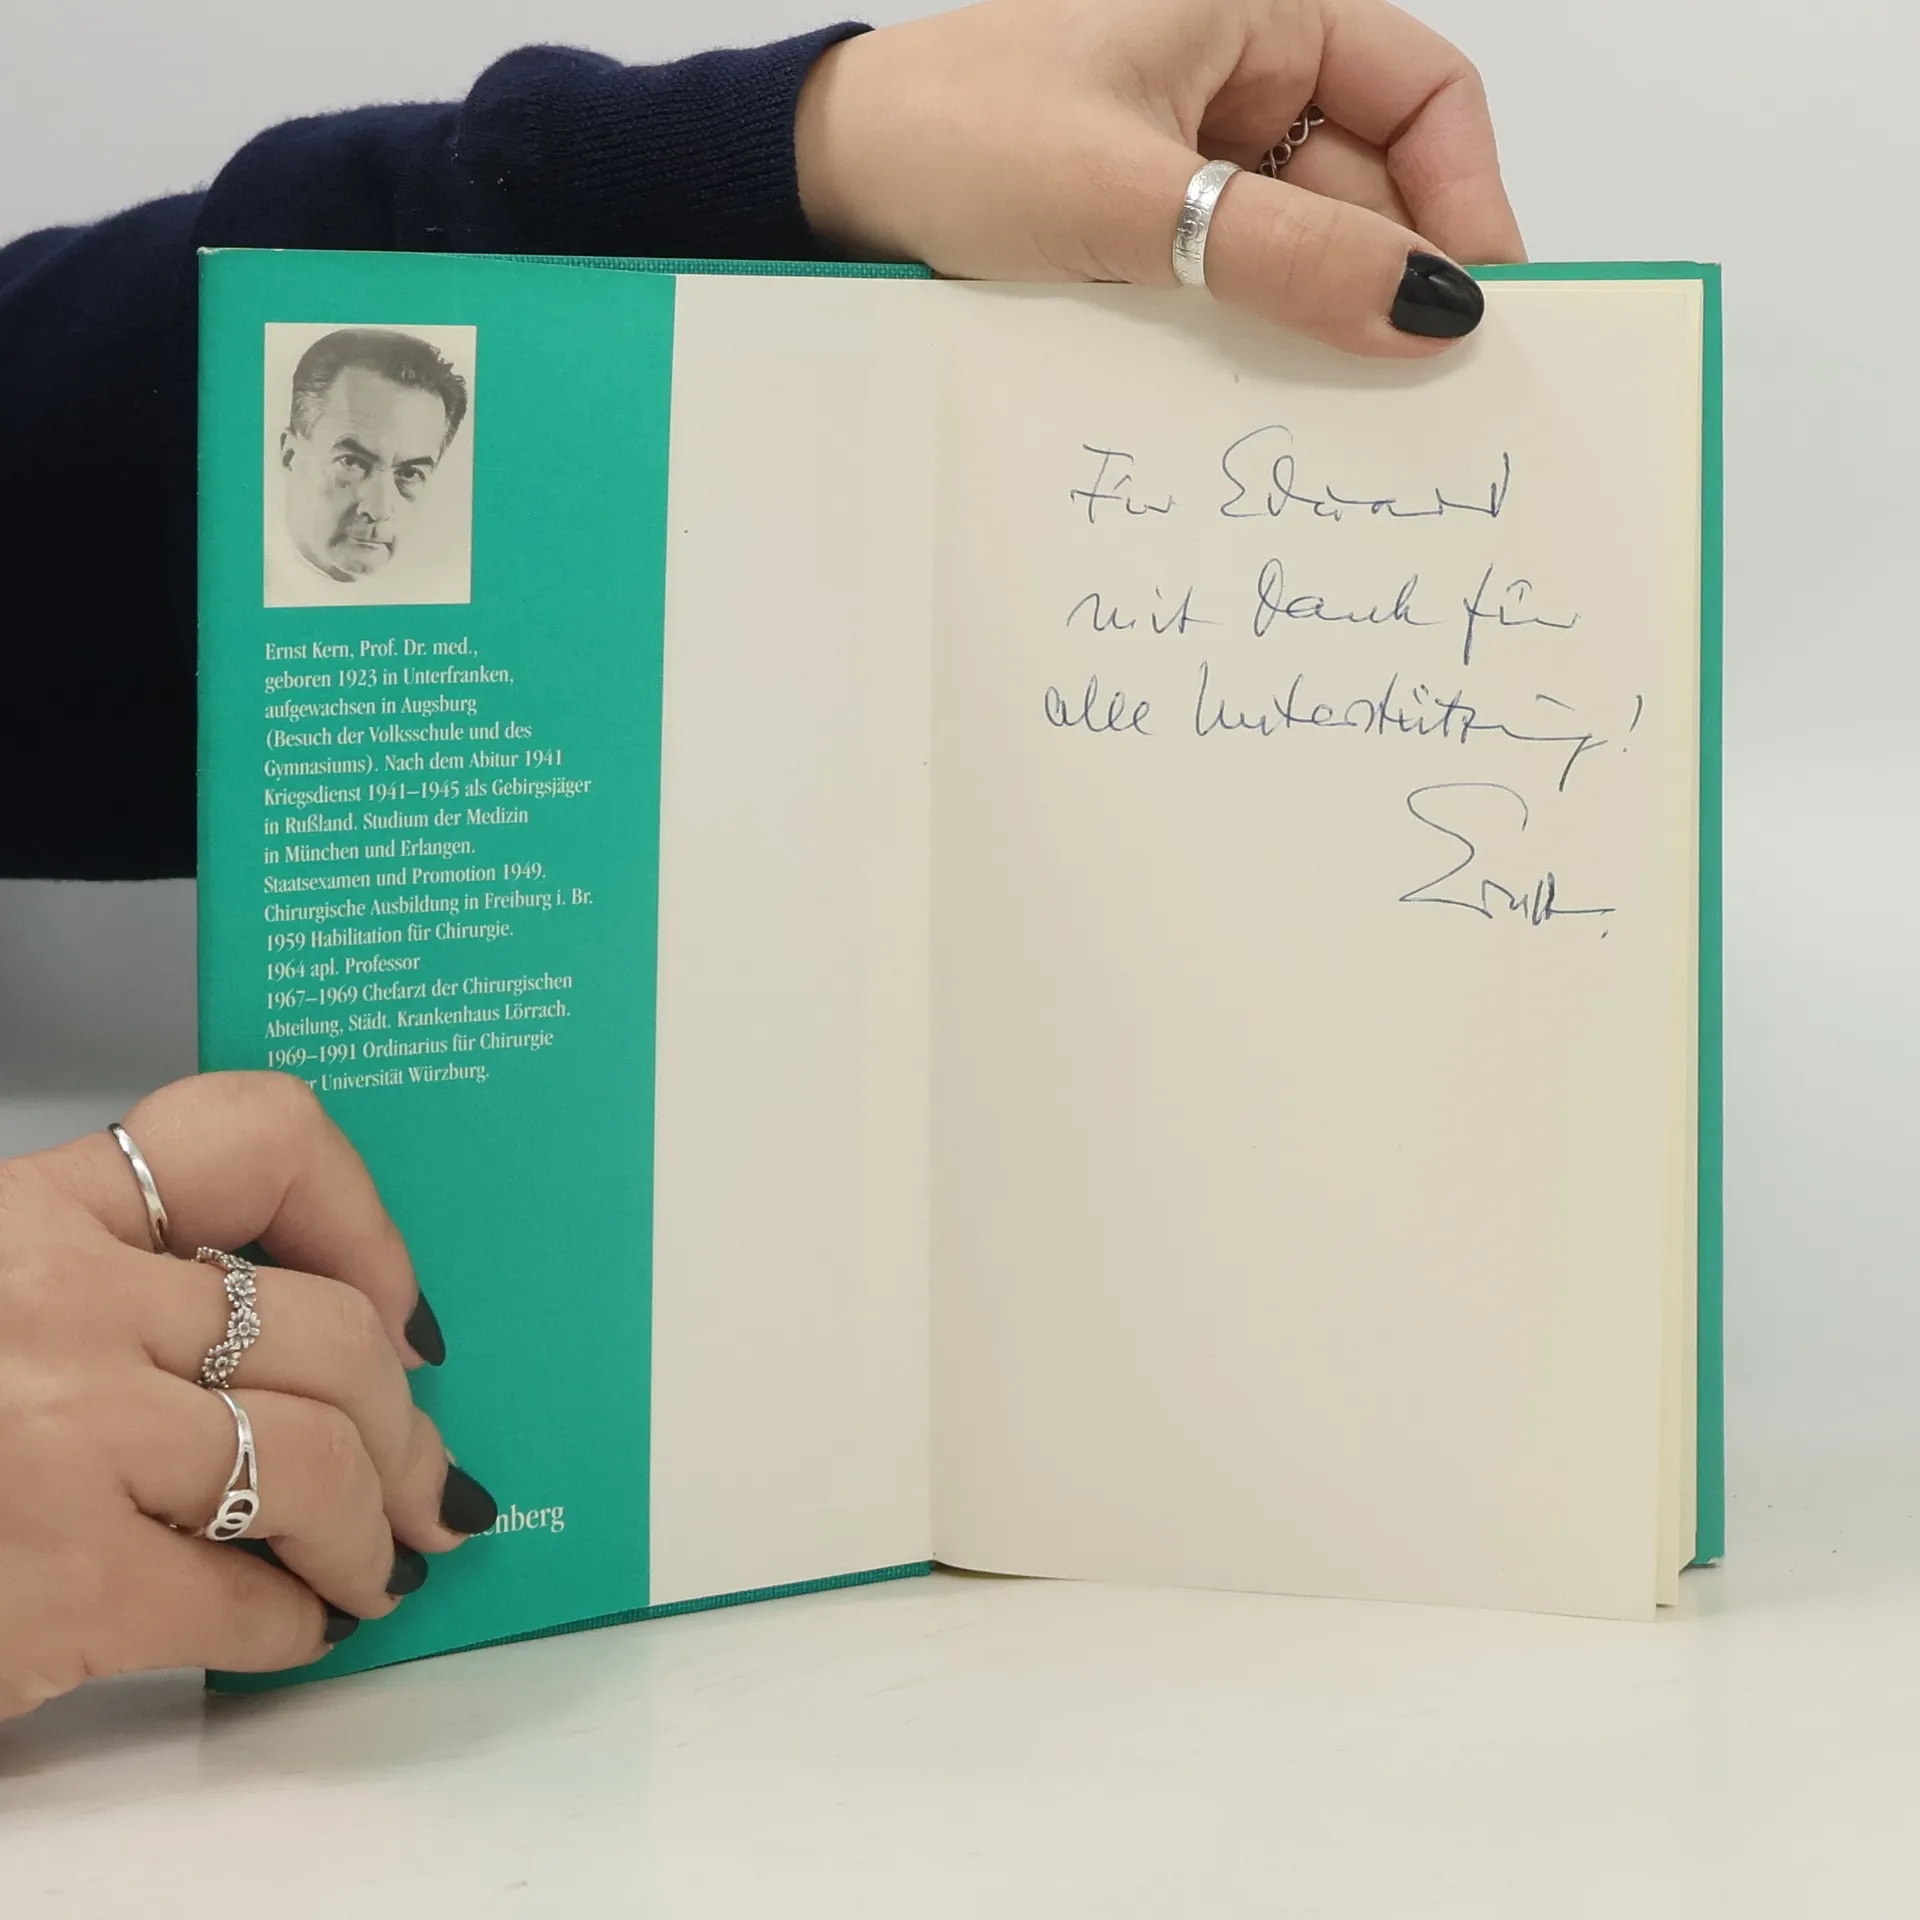 Ernst Kern, Prof. Dr. med.,
geboren 1923 in Unterfranken,
aufgewachsen in Augsburg
(Besuch der Volksschule und des
Gymnasiums). Nach dem Abitur 1941
Kriegsdienst 1941–1945 als Gebirgsjäger
in Rußland. Studium der Medizin
in München und Erlangen.
Staatsexamen und Promotion 1949.
Chirurgische Ausbildung in Freiburg i. Br.
1959 Habilitation für Chirurgie.
1964 apl. Professor
1967–1969 Chefarzt der Chirurgischen
Abteilung, Städt. Krankenhaus Lörrach.
1969–1991 Ordinarius für Chirurgie
Universität Würzburg.
Für Edward
mit Dank für
alle Unterstützung!
Ernst.